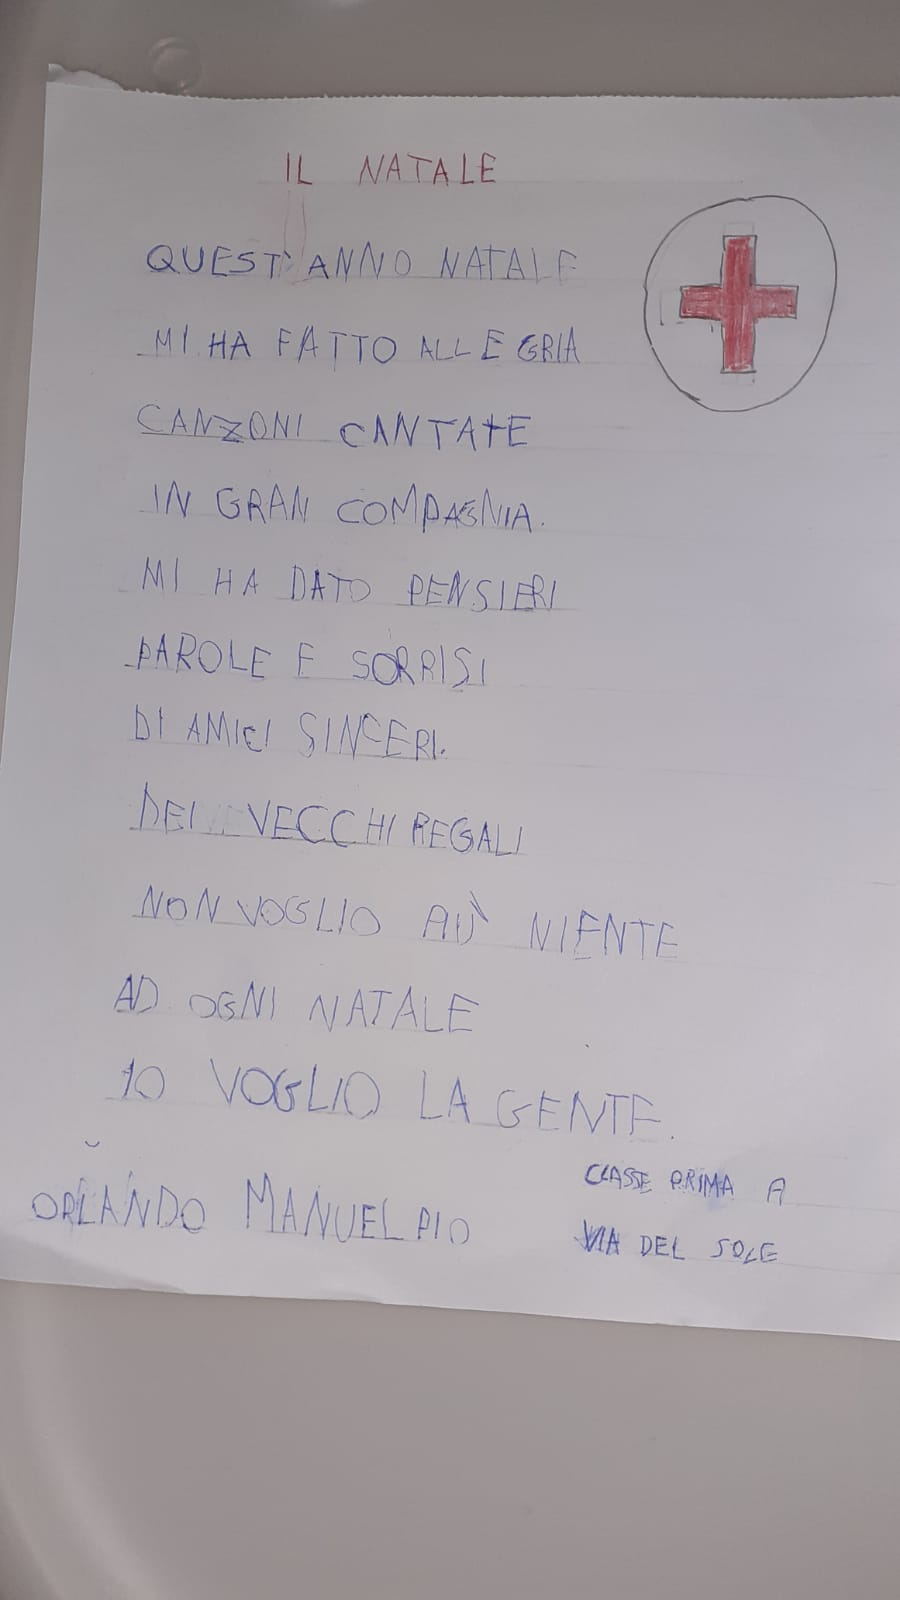 IL NATALE
QUEST'ANNO NATALE
MI HA FATTO ALLEGRIA
CANZONI CANTATE
IN GRAN COMPAGNIA.
MI HA DATO PENSIERI
PAROLE E SORRISI
DI AMICI SINCERI.
DEI VECCHI REGALI
NON VOGLIO PIÙ NIENTE
AD OGNI NATALE
IO VOGLIO LA GENTE.
CLASSE PRIMA A
ORLANDO MANUEL PIO
VIA DEL SOLE